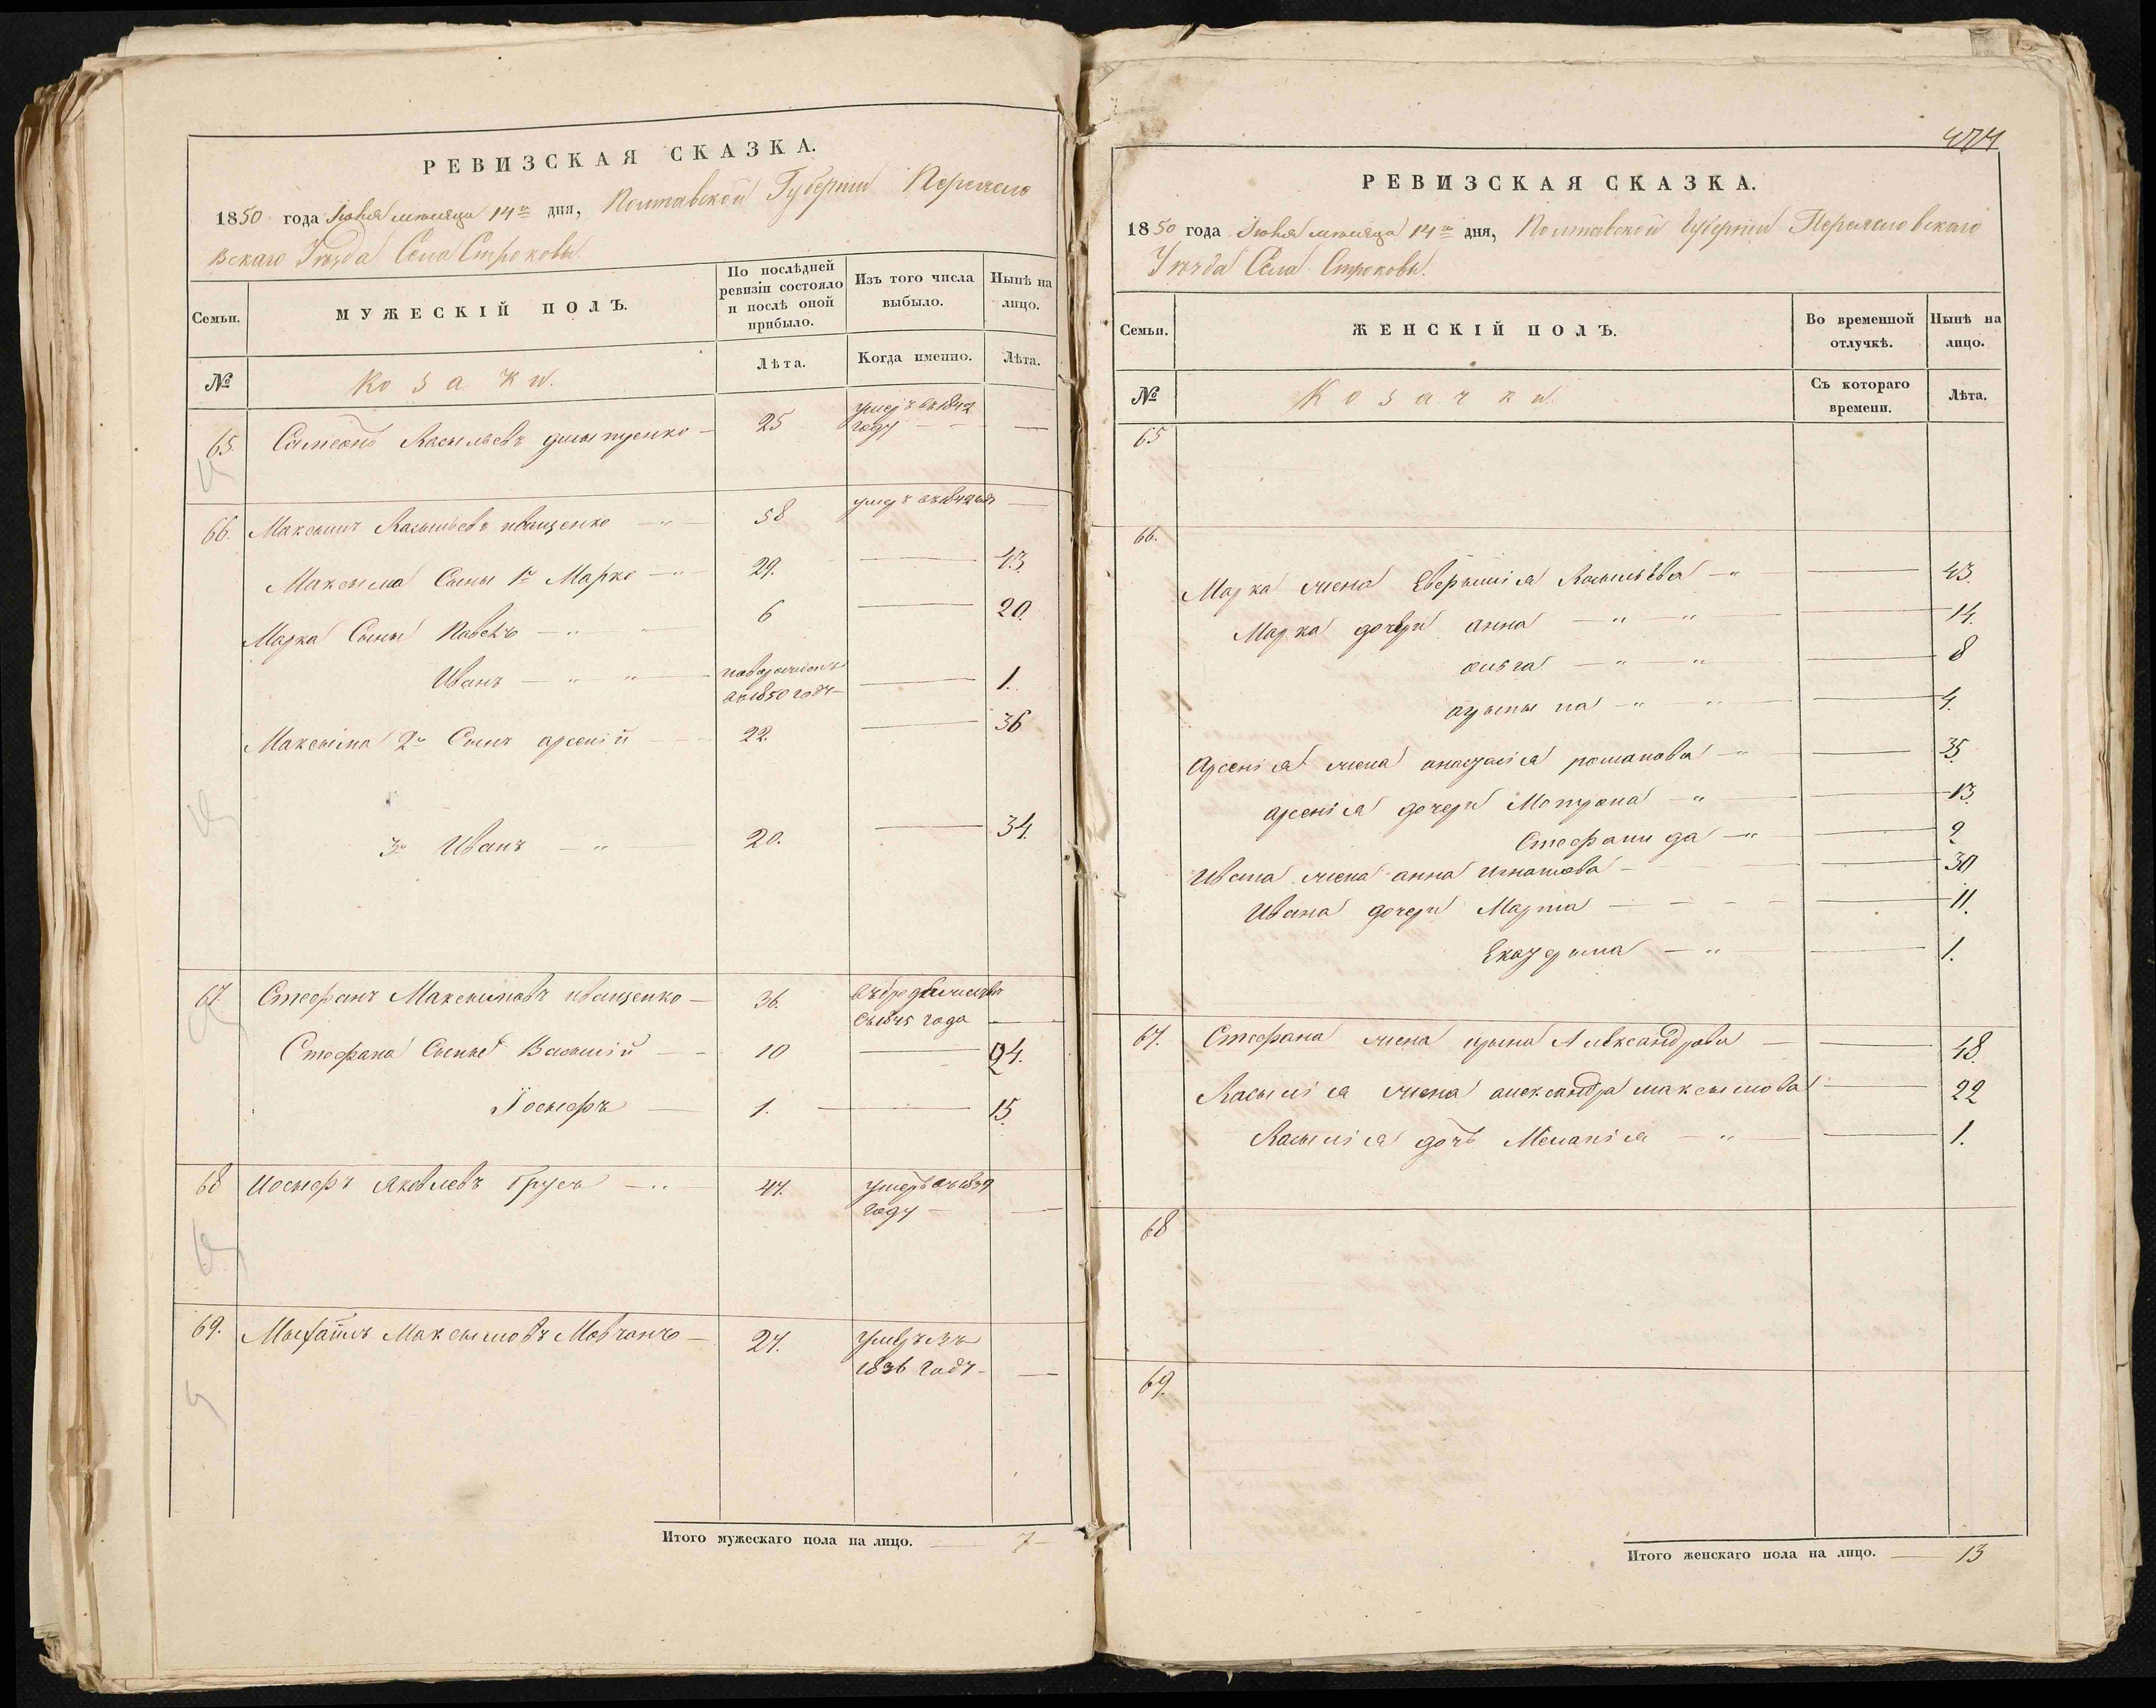 РЕВИЗСКАЯ СКАЗКА.
1850 года Іюня мѣсяца 14го дня, Полтавской Губерніи Переясло
вскаго Уѣзда Села Строковы.
Семьи.
МУЖЕСКІЙ ПОЛЪ.
По послѣдней ревизіи состояло и послѣ оной прибыло.
Изъ того числа выбыло.
Нынѣ на лицо.
№
Козаки.
Лѣта.
Когда именно.
Лѣта.
65. Симеонъ Васильевъ 25 умеръ въ 1842
году —
66. Максымъ Васыльевъ иващенко 58 умеръ въ —
Максыма Сыны 1й Марко 29. — 43.
Марка Сыны Павелъ 6 — 20.
Иванъ новорожденъ
въ 1850 году — 1.
Максыма 2й Сынъ арсеній 22. — 36
3й Иванъ 20. — 34.
67. Стефанъ Максимовъ иващенко 36. въ
съ 1845 года —
Стефана Сыны Василій 10 — 24.
Іосыфъ 1. — 15.
68 Иосыфъ Яковлевъ Грусь 47. умеръ въ 1839
году —
69. Мыхаилъ Максымовъ Мовчанъ 27. умеръ въ
1836 году —
Итого мужескаго пола на лицо. 7
474
РЕВИЗСКАЯ СКАЗКА.
1850 года Іюня мѣсяца 14го дня, Полтавской Губерніи Переясловскаго
Уѣзда Села Строковы.
Семьи.
ЖЕНСКІЙ ПОЛЪ.
Во временной отлучкѣ.
Нынѣ на лицо.
№
Козачки.
Съ котораго времени.
Лѣта.
65
66.
Марка жена Васыльева — 43.
Марка дочери анна — 14.
ольга — 8
— 4.
Арсенія жена анастасія романова — 35.
арсенія дочери Мотрона — 13.
Стефанида — 2
Ивана жена анна Игнатова — 30
Ивана дочери Марта — 11.
Екатерина — 1.
67. Стефана жена ирина Александрова — 48.
Васылія жена александра максымова — 22
Васылія дочь Меланія — 1.
68
69.
Итого женскаго пола на лицо. 13